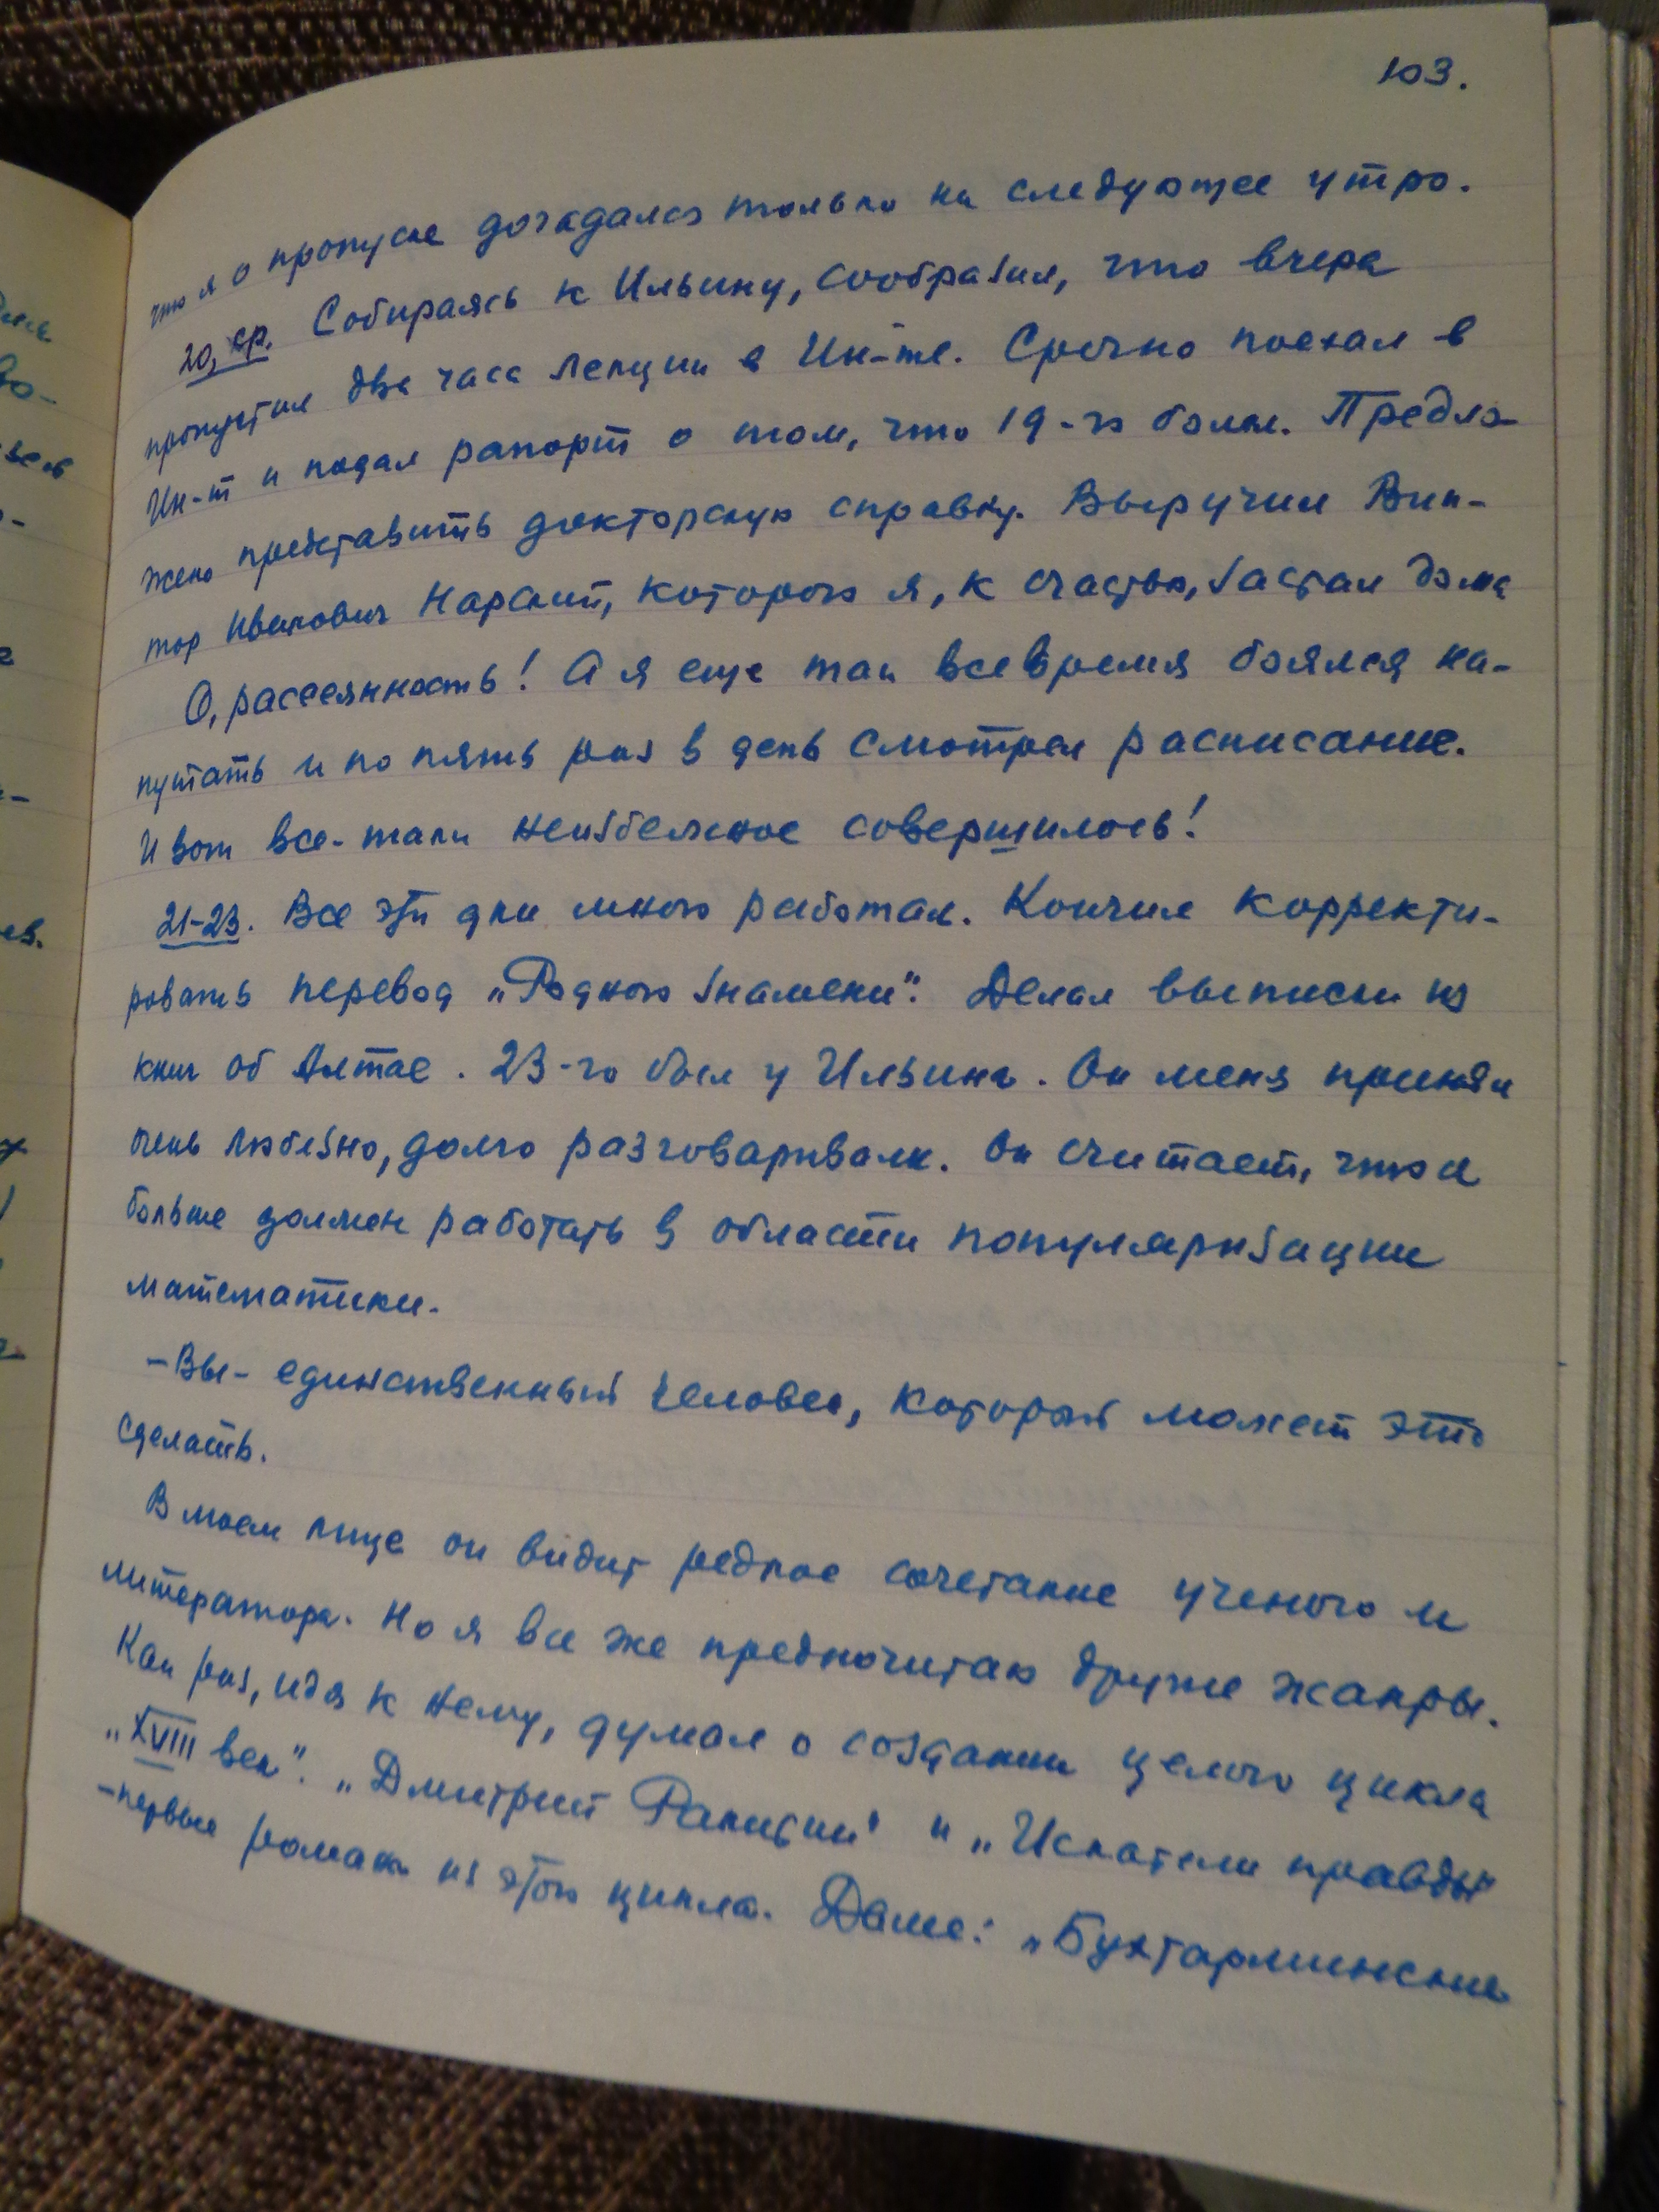 103.
что я о пропуске догадался только на следующее утро.
20, ср. Собираясь к Ильину, сообразил, что вчера
пропустил два часа лекции в Ин-те. Срочно поехал в
Ин-т и подал рапорт о том, что 19-го болел. Предло-
жено представить докторскую справку. Выручил Вик-
тор Иванович Нарский, которого я, к счастью, застал дома
О, рассеянность! А я еще так все время боялся на-
путать и по пять раз в день смотрел расписание.
И вот все-таки неизбежное совершилось!
21-23. Все эти дни много работал. Кончил корректи-
ровать перевод „Родного знамени“. Делал выписки из
книг об Алтае. 23-го был у Ильина. Он меня принял
очень любезно, долго разговаривали. Он считает, что я
больше должен работать в области популяризации
математики.
- Вы - единственный человек, который может это
сделать.
В моем лице он видит редкое сочетание ученого и
литератора. Но я все же предпочитаю другие жанры.
Как раз, идя к нему, думал о создании целого цикла
„XVIII век“. „Дмитрий Ракитин“ и „Искатели правды“
- первые романы из этого цикла. Далее: „Бухтарминские